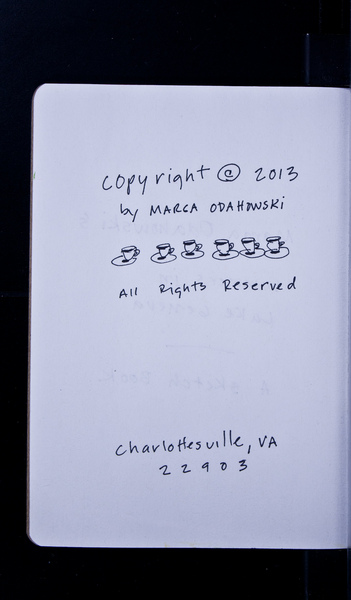 copyright © 2013
by MARGA ODAHOWSKI
All Rights Reserved
Charlottesville, VA
22903